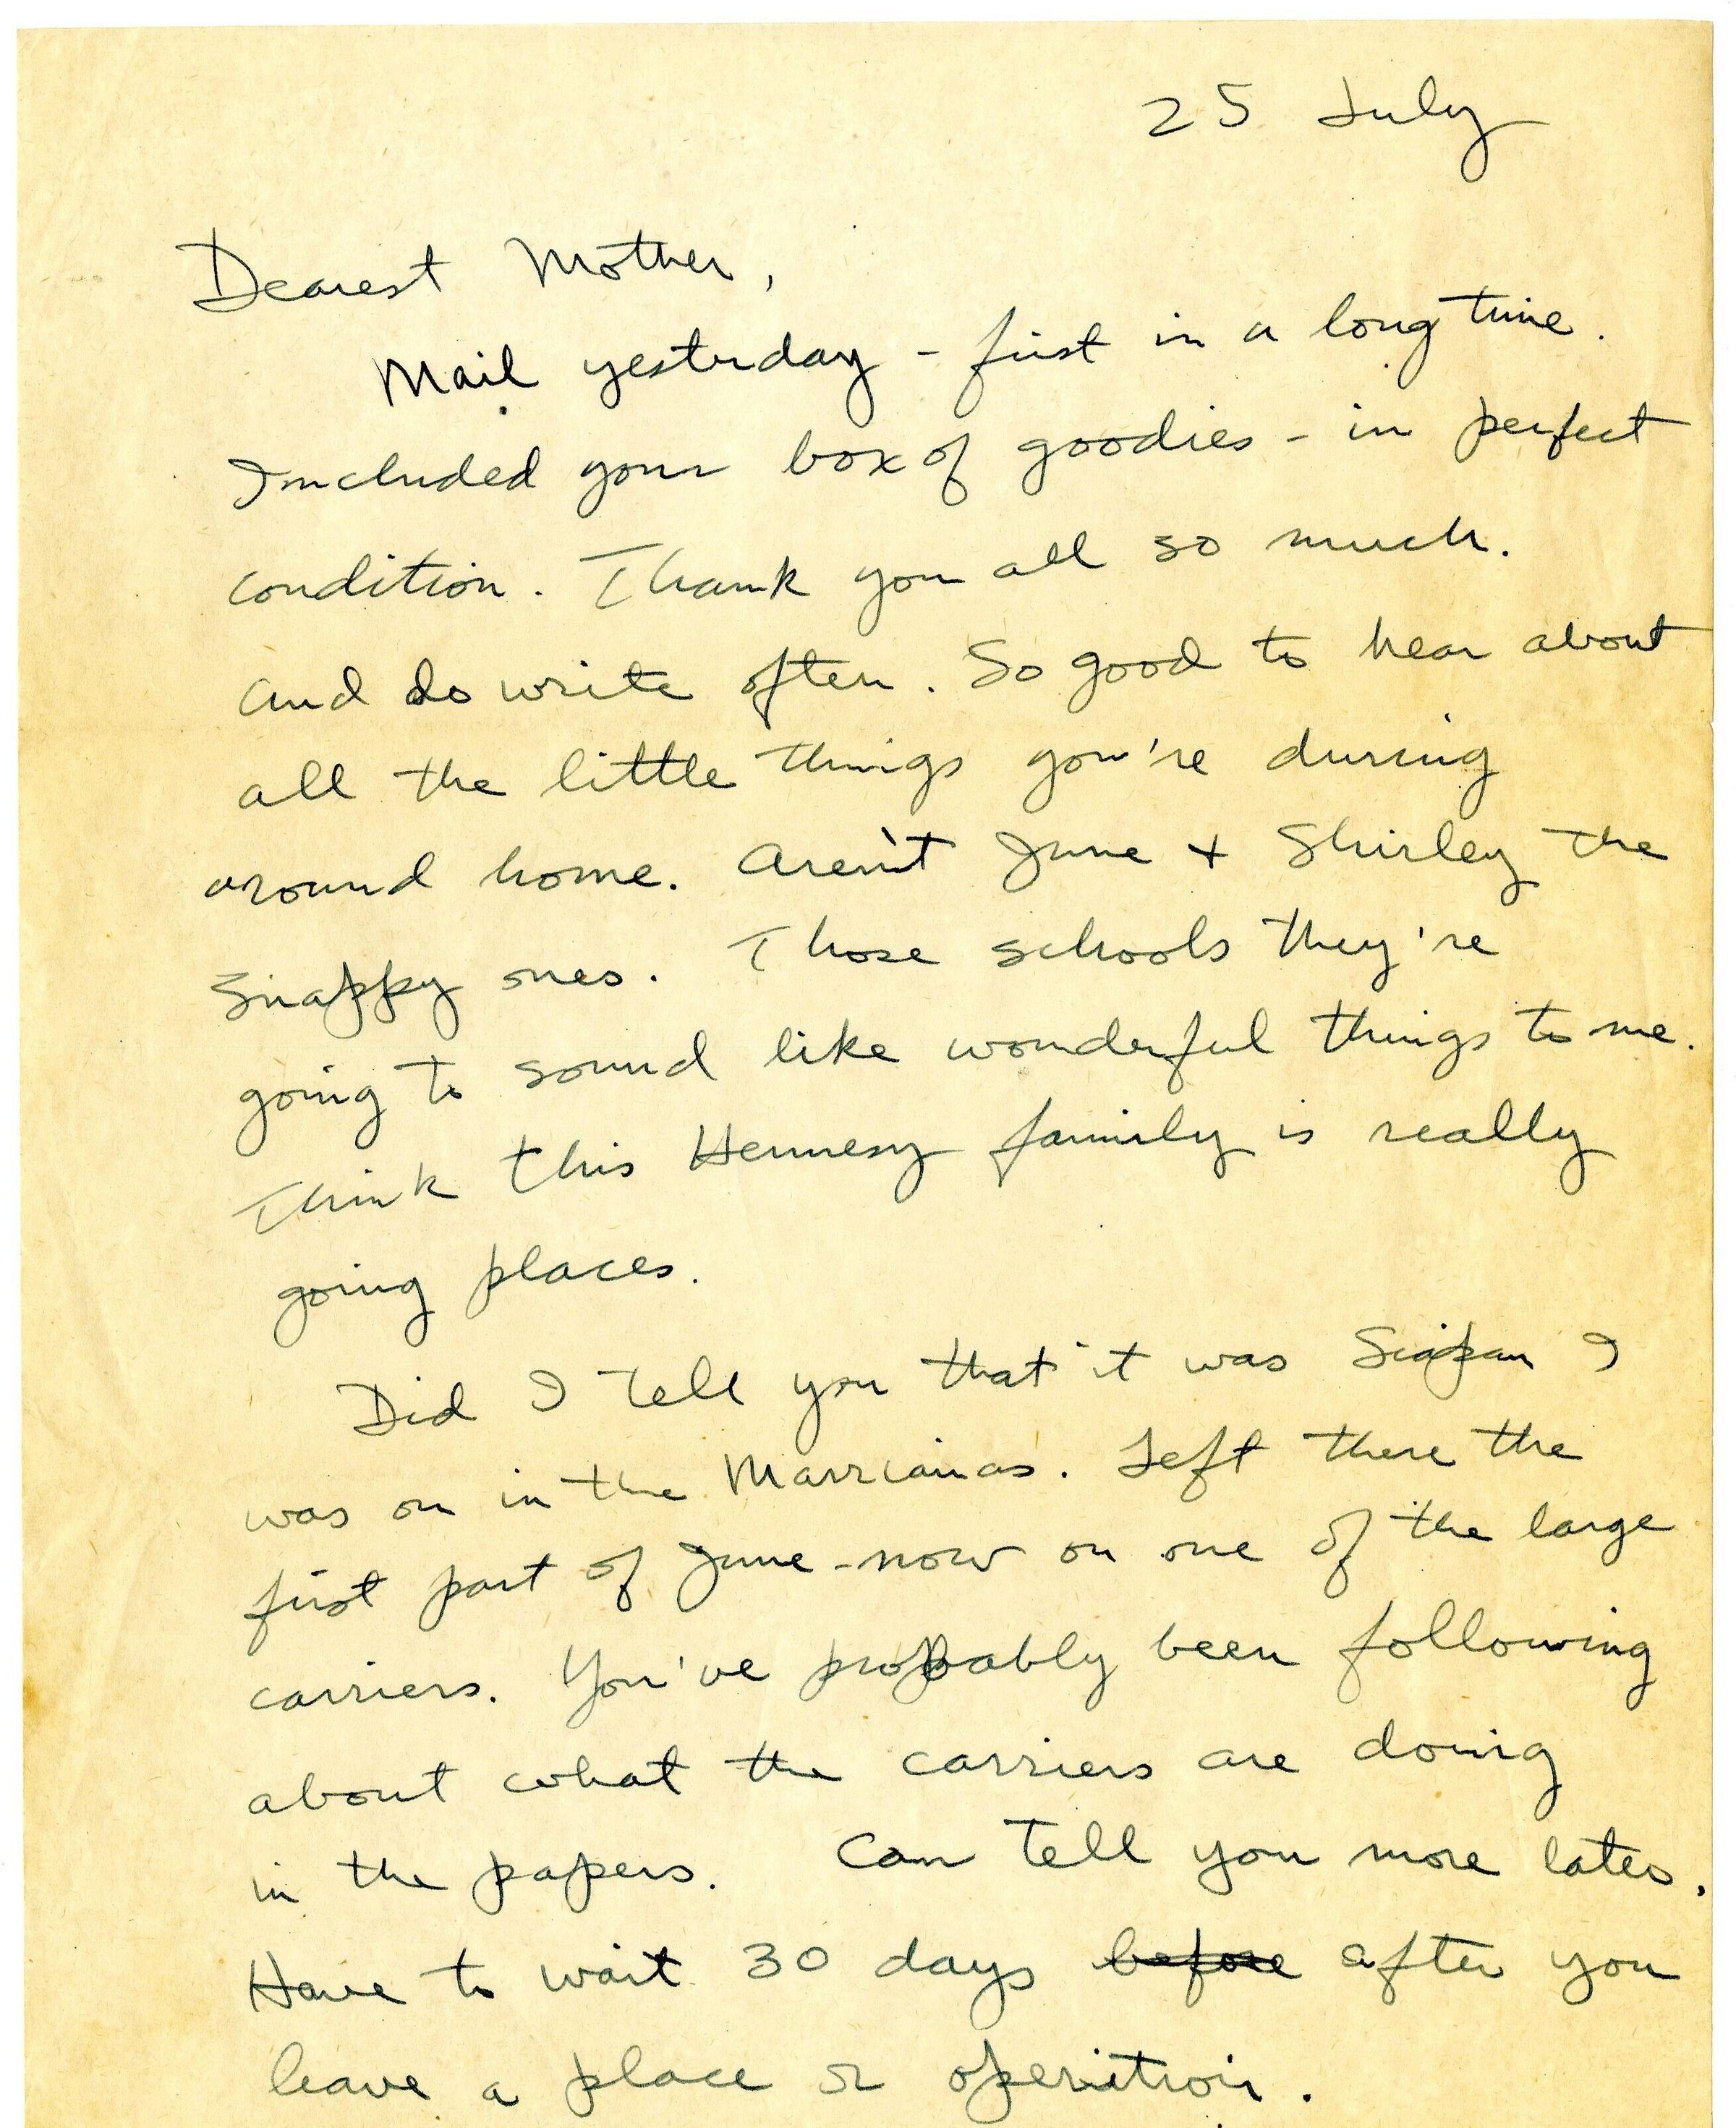 25 July
Dearest Mother,
Mail yesterday - first in a long time.
Included your box of goodies - in perfect
condition. Thank you all so much.
And do write often. So good to hear about
all the little things you're during
around home. Aren't June + Shirley the
snappy ones. Those schools they're
going to sound like wonderful things to me.
Think this Hennesy family is really
going places.
Did I tell you that it was Siapan I
was on in the Marrianas. Left there the
first part of June - now on one of the large
carriers. You've probably been following
about what the carriers are doing
in the papers. Can tell you more later.
Have to wait 30 days before after you
leave a place or operation.